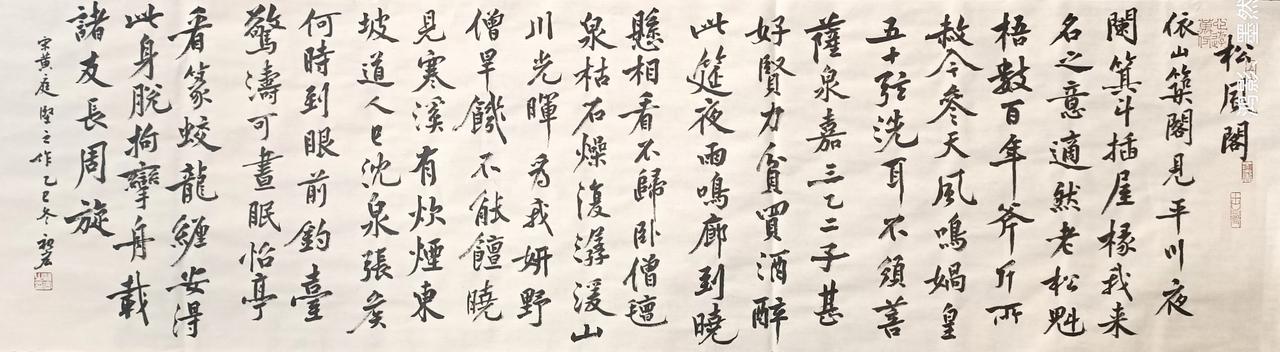 松風閣
依山築閣見平川夜
闌箕斗插屋椽我来
名之意適然老松魁
梧數百年斧斤所
赦今參天風鳴媧皇
五十弦洗耳不須菩
薩泉嘉三二子甚
好賢力貧買酒醉
此筵夜雨鳴廊到曉
懸相看不歸卧僧氈
泉枯石燥復潺湲山
川光暉為我妍野
僧旱饑不能饘曉
見寒溪有炊煙東
坡道人已沈泉張侯
何時到眼前釣臺
驚濤可晝眠怡亭
看篆蛟龍纏安得
此身脫拘攣舟載
諸友長周旋
宋黃庭堅之作乙巳冬